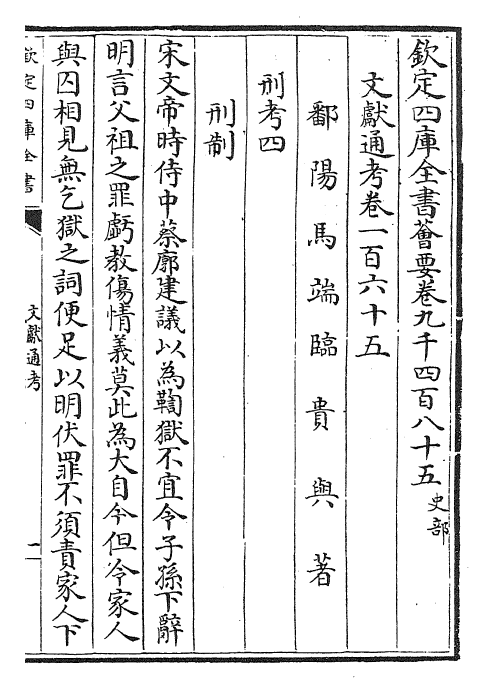 欽定四庫全書薈要卷九千四百八十五史部
文獻通考卷一百六十五
鄱陽馬端臨貴與著
刑考四
刑制
宋文帝時侍中蔡廓建議以為鞫獄不宜令子孫下辭
明言父祖之罪虧教傷情義莫此為大自今但令家人
與囚相見無乞獄之詞便足以明伏罪不須責家人下
欽定四庫全書
文獻通考
一